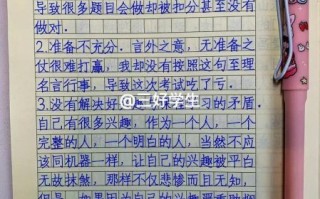 导致很多题目会做却被扣分甚至没有
做对.
2.准备不充分.言外之意,无准备之
仗很难打赢,我却没有按照这句至理
名言行事,导致这次考试吃了亏.
3.没有解决好 习的矛盾.
@三好学生
自己有很多兴趣,作为一个人,一个
完整的人,一个明白的人,当然不应
该同机器一样,让自己的兴趣被平白
无故抹煞,那样不仅悲惨而且无知,
但是,如果因为自己兴趣严重耽搁